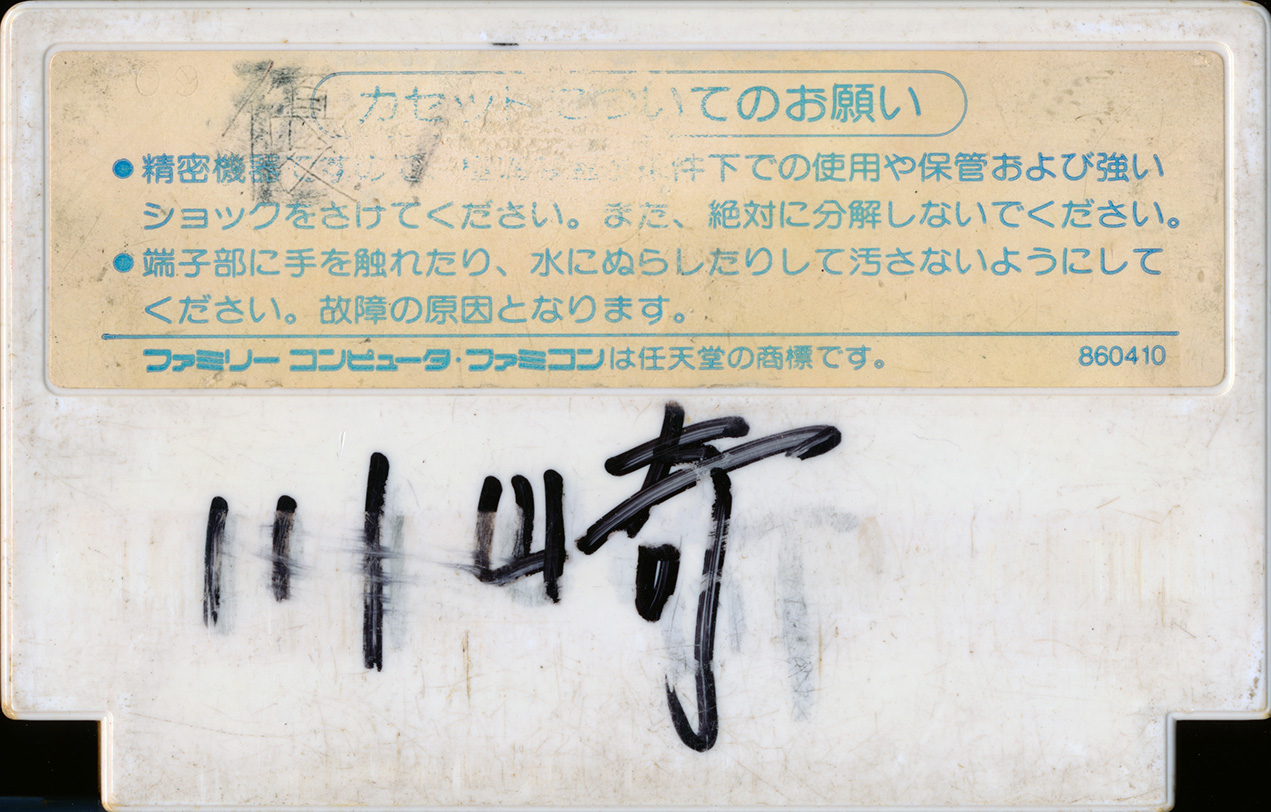 カセットについてのお願い
●精密機器ですので、極端な温度条件下での使用や保管および強い
ショックをさけてください。また、絶対に分解しないでください。
●端子部に手を触れたり、水にぬらしたりして汚さないようにして
ください。故障の原因となります。
ファミリーコンピュータ・ファミコンは任天堂の商標です。 860410
川崎